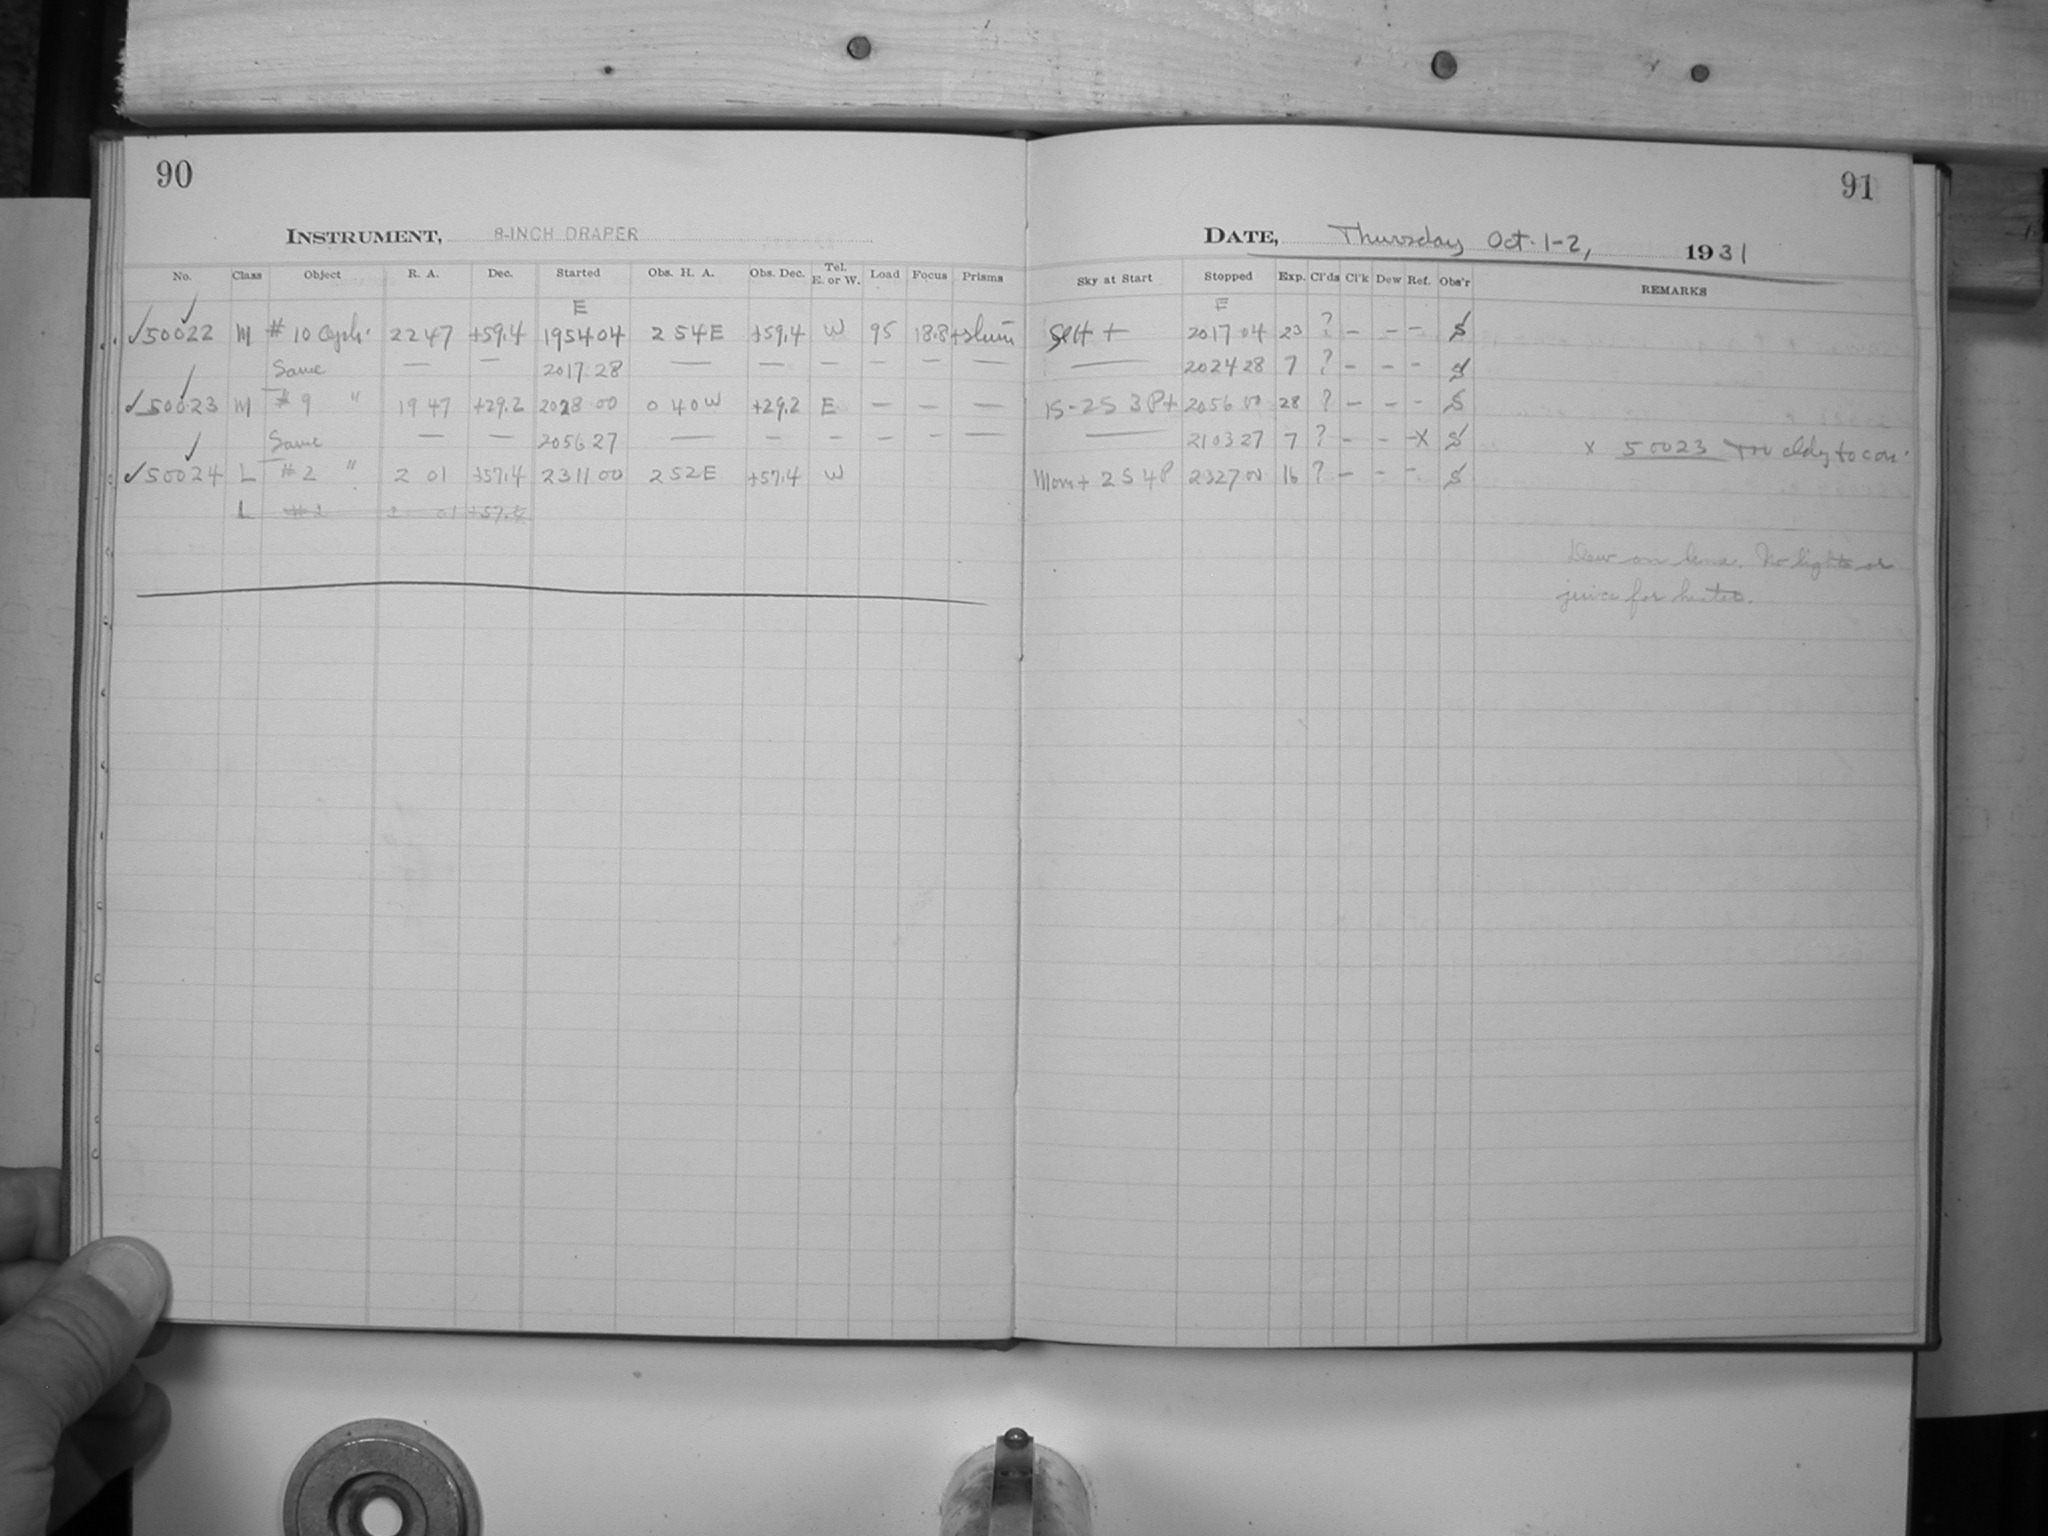 90
INSTRUMENT, 8-INCH DRAPER
No. Class Object R. A. Dec. Started Obs. H. A. Obs. Dec. Tel. E. or W. Load Focus Prisms
E
✓50022 M # 10 Ceph. 22 47 +59.4 195404 2 54 E +59.4 W 95 18.8
Same — — 2017 28 — — — — — —
✓50023 M # 9 " 19 47 +29.2 2028 00 0 40 W +29.2 E — — —
Same — — 2056 27 — — — — — —
✓50024 L # 2 " 2 01 +57.4 2311 00 2 52 E +57.4 W
L # 2 2 01 +57.4
91
DATE, Thursday Oct. 1-2, 1931
Sky at Start Stopped Exp. Cl'ds Cl'k Dew Ref. Obs'r REMARKS
E
2017 04 23 ? — — — S
— 2024 28 7 ? — — — S
1S-2S 3P+ 2056 00 28 ? — — — S
— 2103 27 7 ? — — —X S x 50023 Too cldy to con.
Mom + 2S 4P 2327 00 16 ? — — — S
Dew on lens. No lights or
juice for heater.